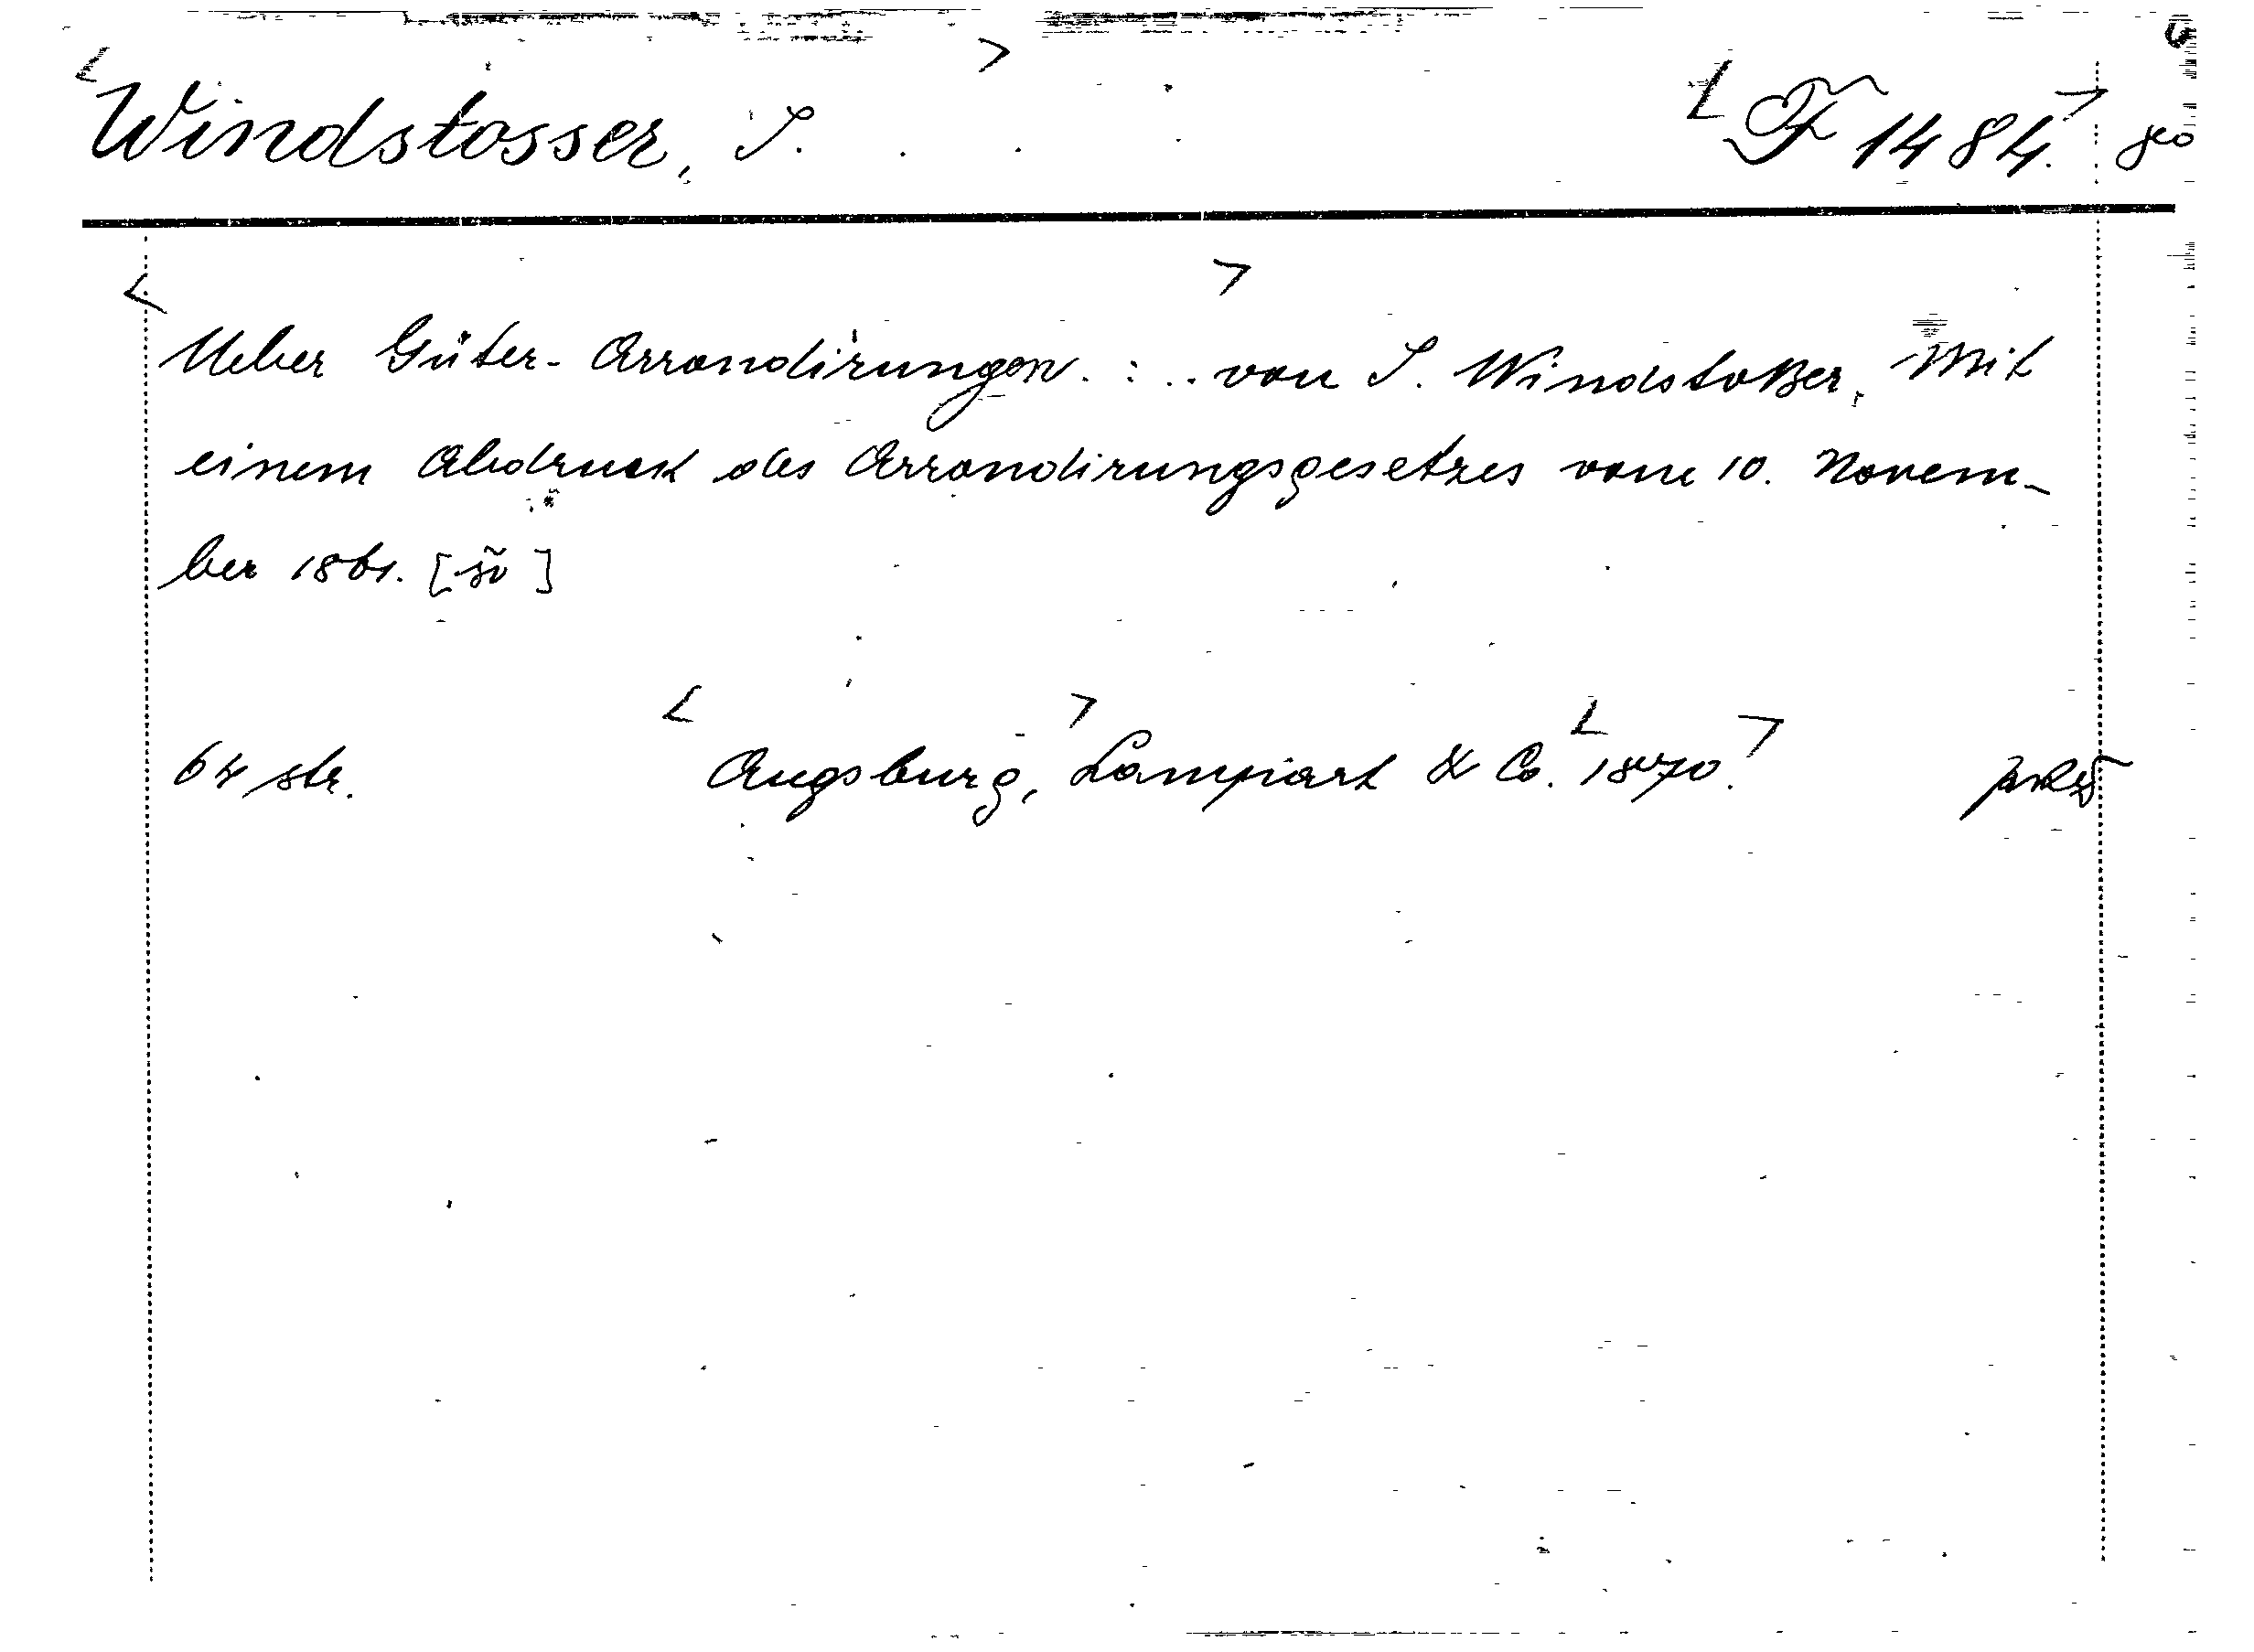 Windstosser, S. F 1484.
Ueber Güter-Arrondirungen. : .. von S. Windstoßer, Mit
einem Abdruck des Arrondirungsgesetzes vom 10. Novem-
ber 1861.
64 str. Augsburg, Lampart & Co. 1870.